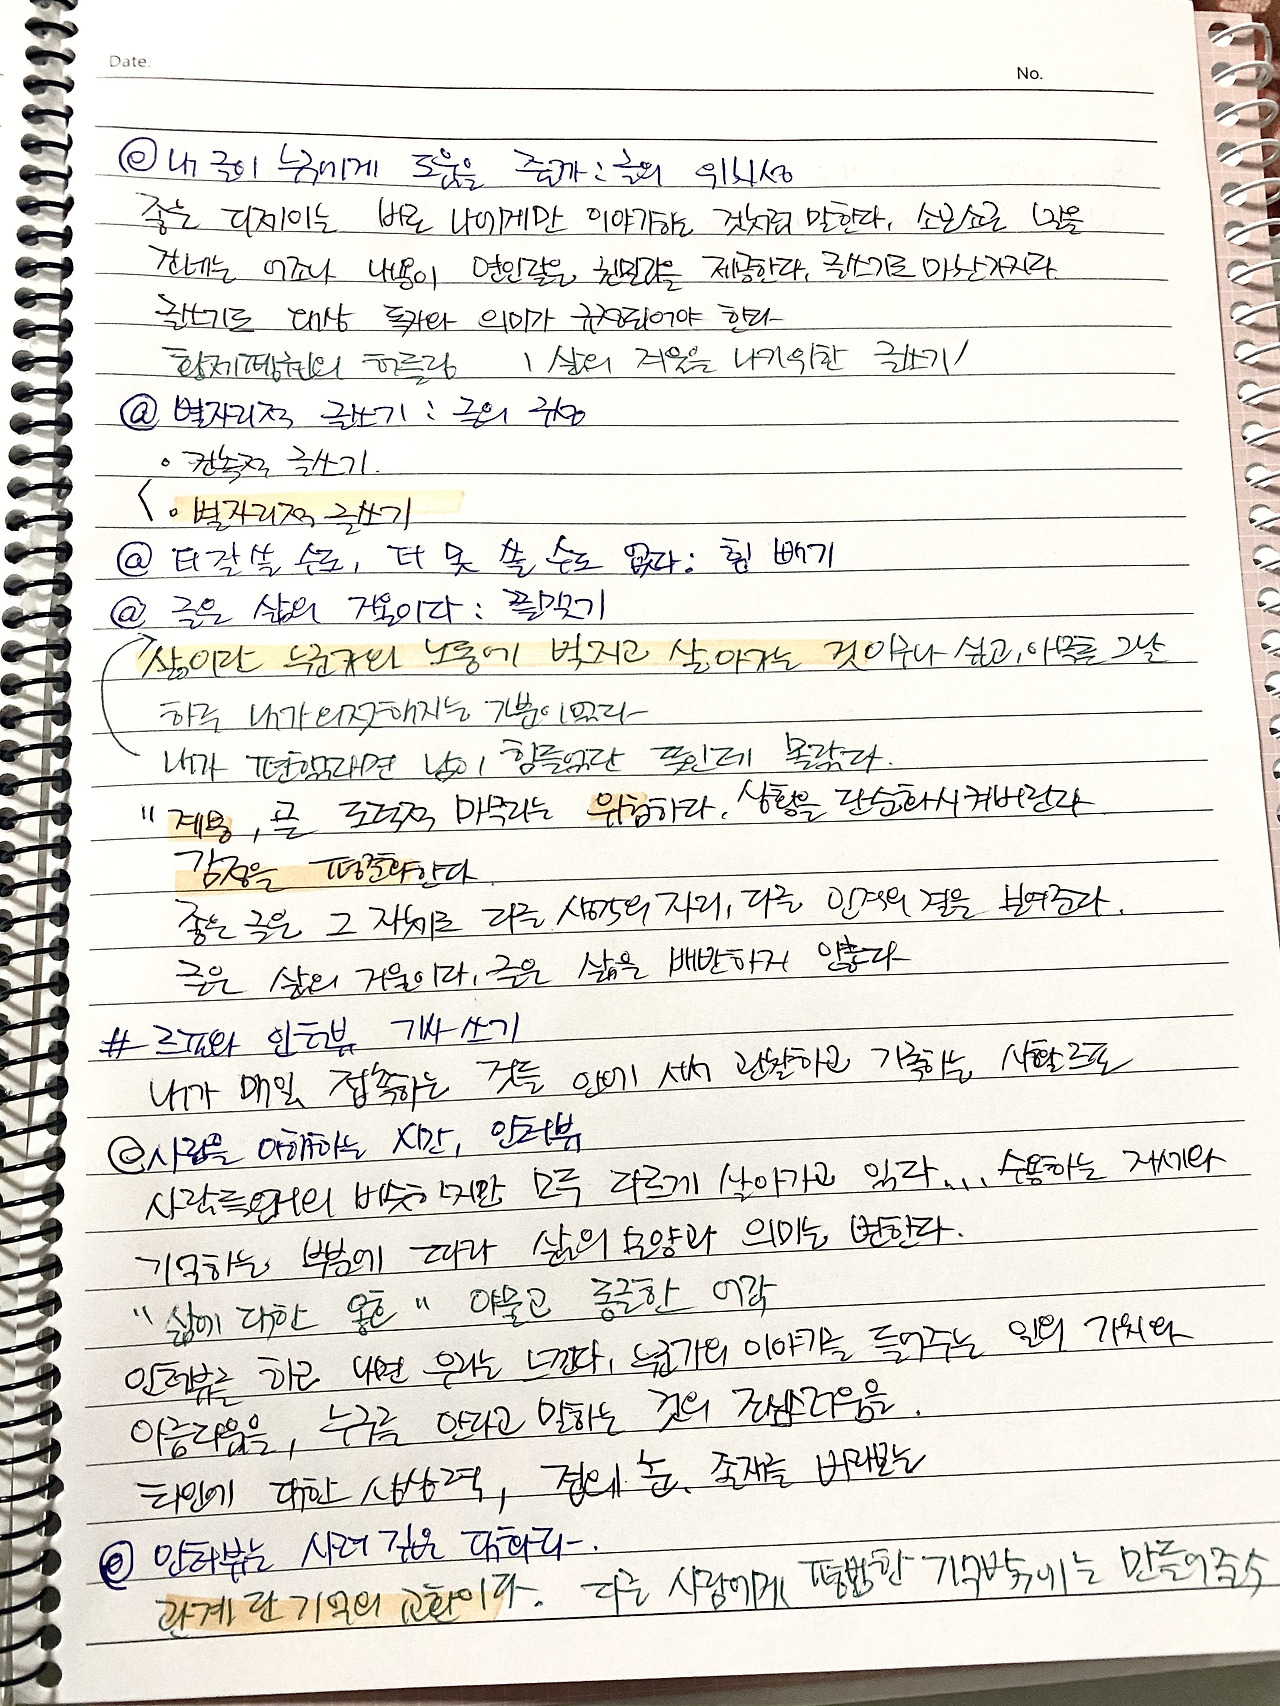 Date.
No.
@ 내 글이 누구에게 도움을 줄까 : 글의 위치성
좋은 디제이는 바로 나에게만 이야기하는 것처럼 말한다. 소곤소곤 말을
건네는 어조나 내용이 연인같은 친밀감을 제공한다. 글쓰기도 마찬가지다
글쓰기도 대상 독자와 의미가 규정되어야 한다
황제펭귄의 허들링 / 삶의 겨울을 나기위한 글쓰기/
@ 별자리적 글쓰기 : 글의 구성
• 건축적 글쓰기.
• 별자리적 글쓰기
@ 더 잘 쓸 수도, 더 못 쓸 수도 없다 : 힘 빼기
@ 글은 삶의 거울이다 : 끝맺기
삶이란 누군가의 노동에 빚지고 살아가는 것이구나 싶고, 아무튼 그날
하루 내가 의젓해지는 기분이었다
내가 편했다면 남이 힘들었단 뜻인데 몰랐다.
" 계몽, 끝 도덕적 마무리는 위험하다. 상황을 단순화시켜버린다
감정을 평준화한다
좋은 글은 그 자체로 다른 사유의 자리, 다른 인격의 결을 보여준다.
글은 삶의 거울이다. 글은 삶을 배반하지 않는다
# 르포와 인터뷰 기사 쓰기
내가 매일 접촉하는 것들 안에 서서 관찰하고 기록하는 생활르포
@ 사람을 이해하는 시간, 인터뷰
사람들 거의 비슷하지만 모두 다르게 살아가고 있다... 수용하는 자세와
기억하는 부분에 따라 삶의 모양과 의미는 변한다.
" 삶에 대한 옹호 " 야물고 둥글한 어감
인터뷰를 하고 나면 우리는 느낀다. 누군가의 이야기를 들어주는 일의 가치와
아름다움을, 누구를 안다고 말하는 것의 조심스러움을.
타인에 대한 상상력, 겹의 눈. 존재를 바라보는
@ 인터뷰는 사려 깊은 대화다.
관계란 기억의 교환이다. 다른 사람에게 평범한 기억밖에는 만들어줄 수